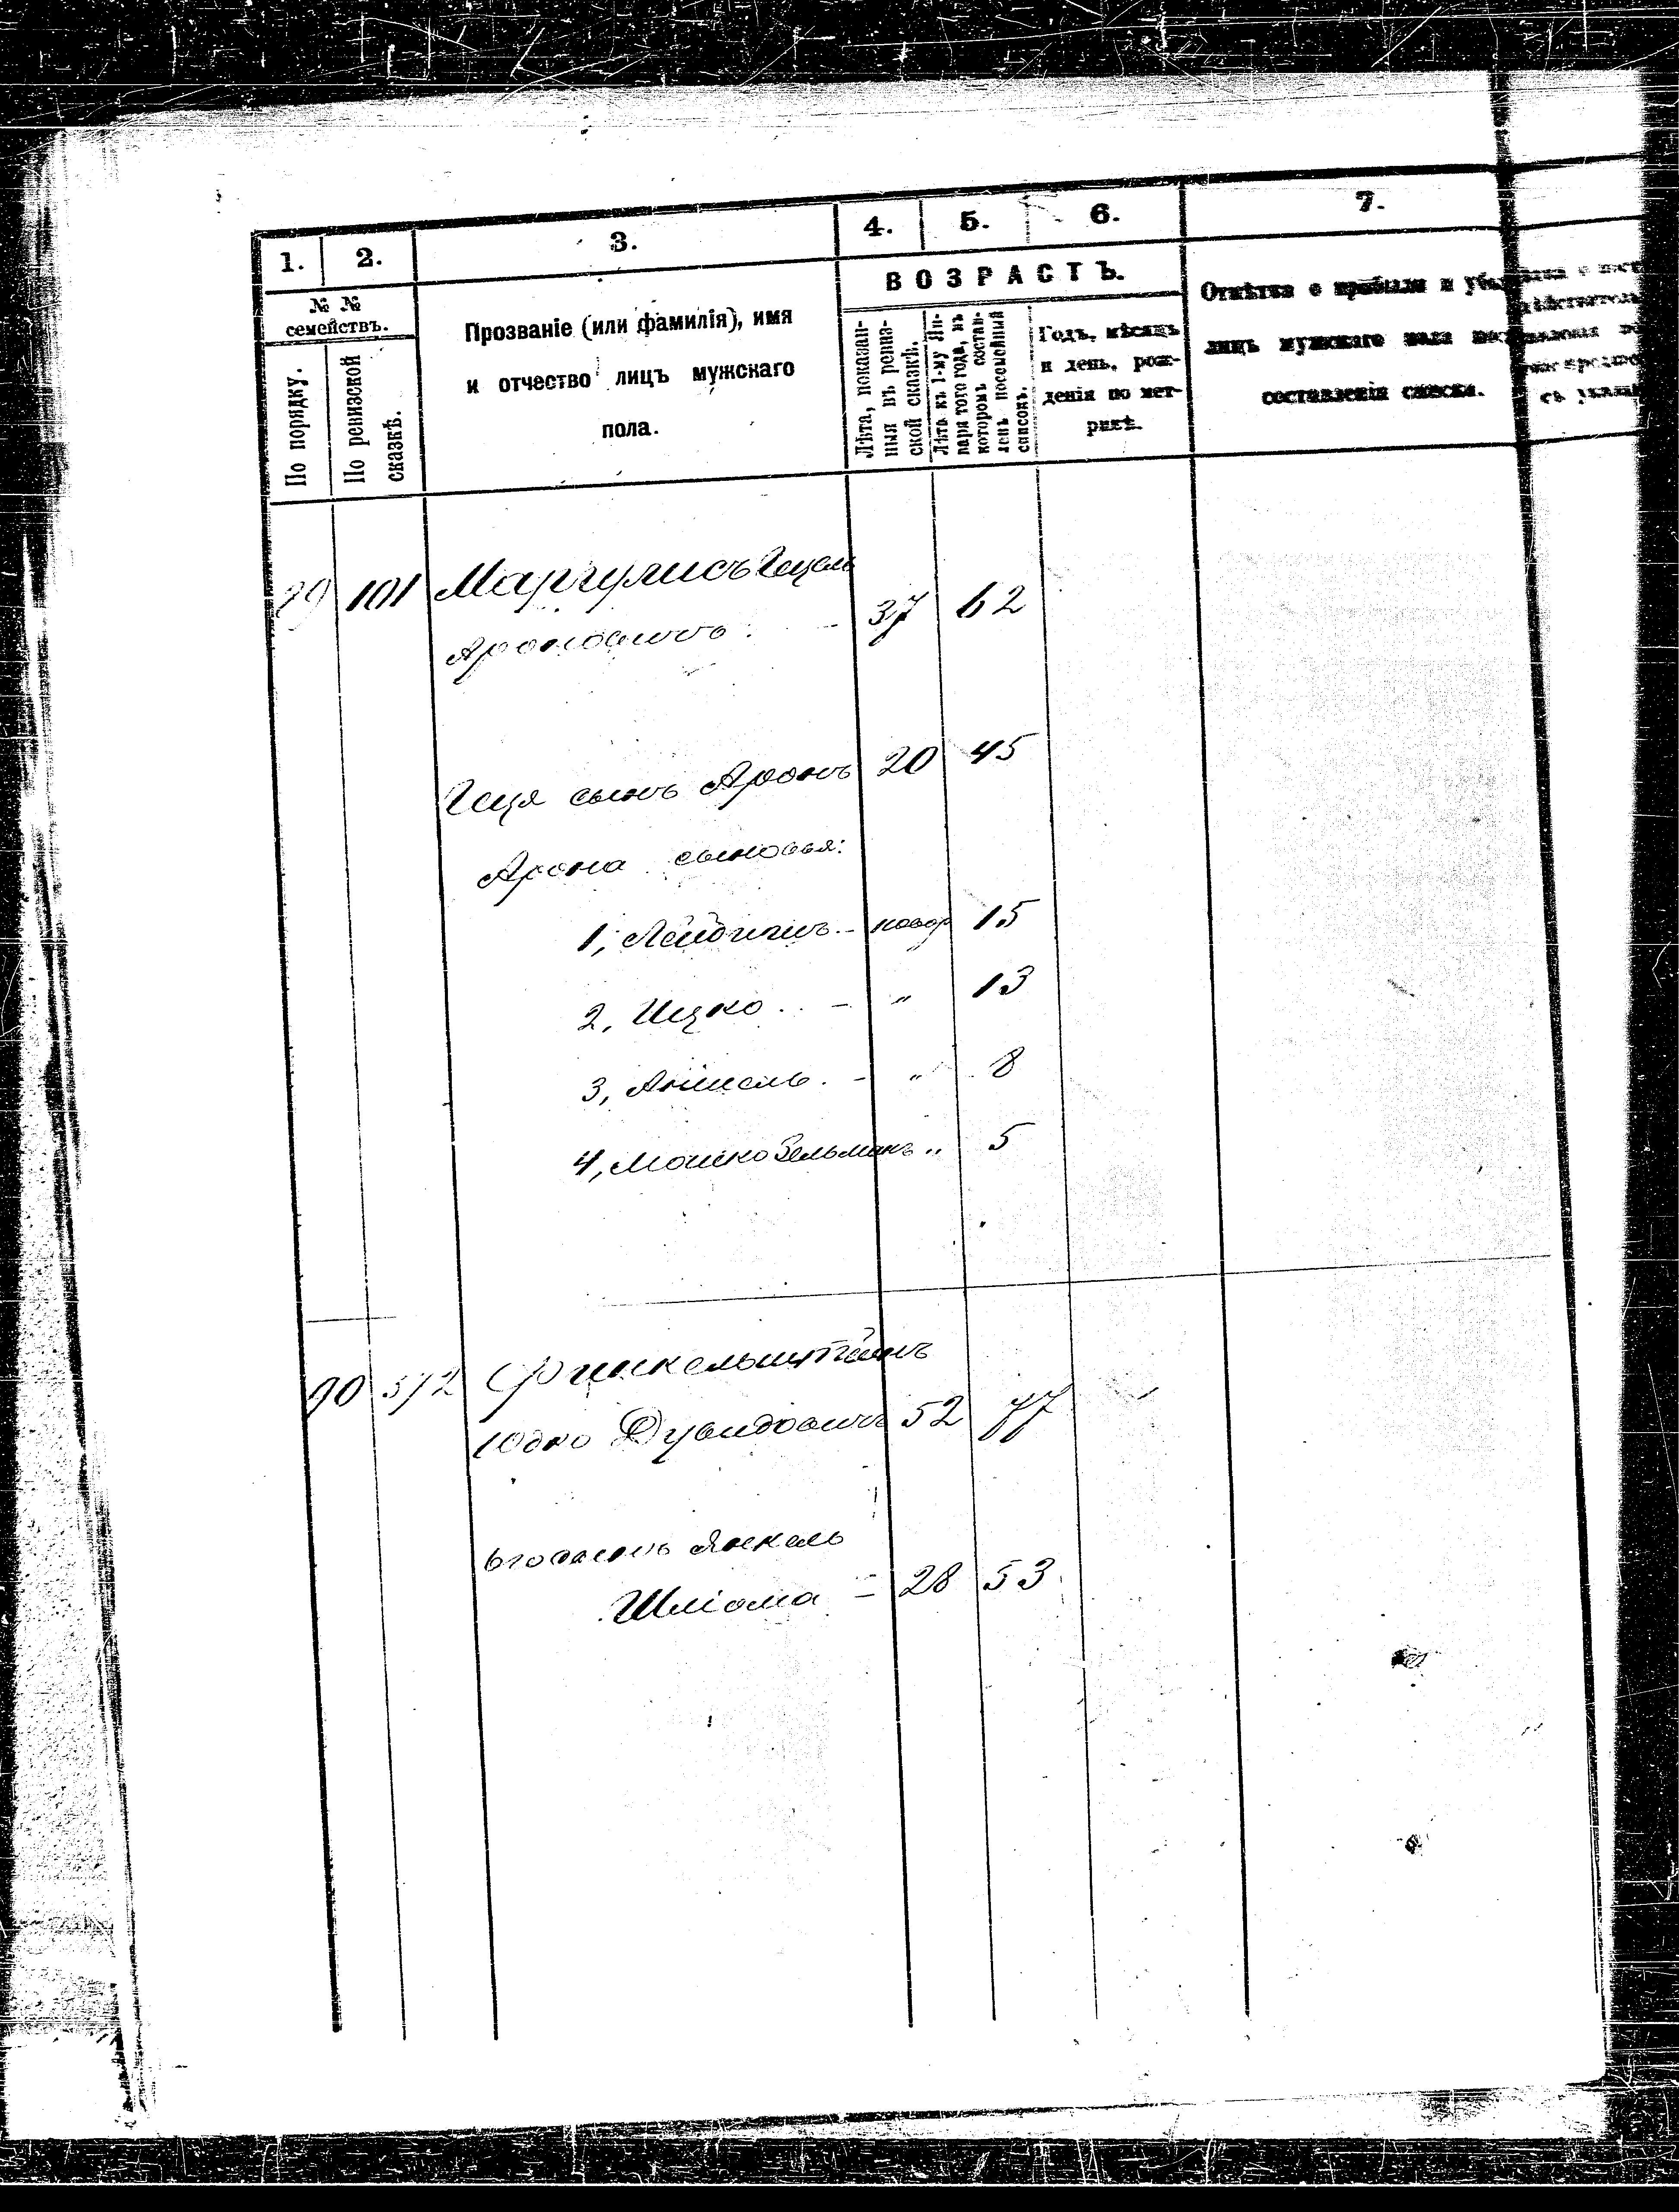 1. 2. 3. 4. 5. 6. 7.
№ № семействъ.
По порядку.
По ревизской сказкѣ.
Прозваніе (или фамилія), имя
и отчество лицъ мужскаго
пола.
ВОЗРАСТЪ.
Лѣта, показан-
ныя въ ревиз-
ской сказкѣ.
Лѣта къ 1-му Ян-
варя того года, въ
которомъ состав-
ленъ посемейный
списокъ.
Годъ, мѣсяцъ
и день, рож-
денія по мет-
рикѣ.
Отмѣтка о прибыли и
лицъ мужскаго пола
составленія списка.
101 Маргулисъ Гецель
Ароновичъ. - 37 62
Геця сынъ Аронъ 20 45
Арона сыновья:
1, - новор 15
2, Ицко .. - " 13
3, Аншель. - " 8
4, Мошко Зельманъ " 5
90 572 Финкельштейнъ
Юдко Дувидовичъ 52 77
Его сынъ Янкель
Шліома - 28 53